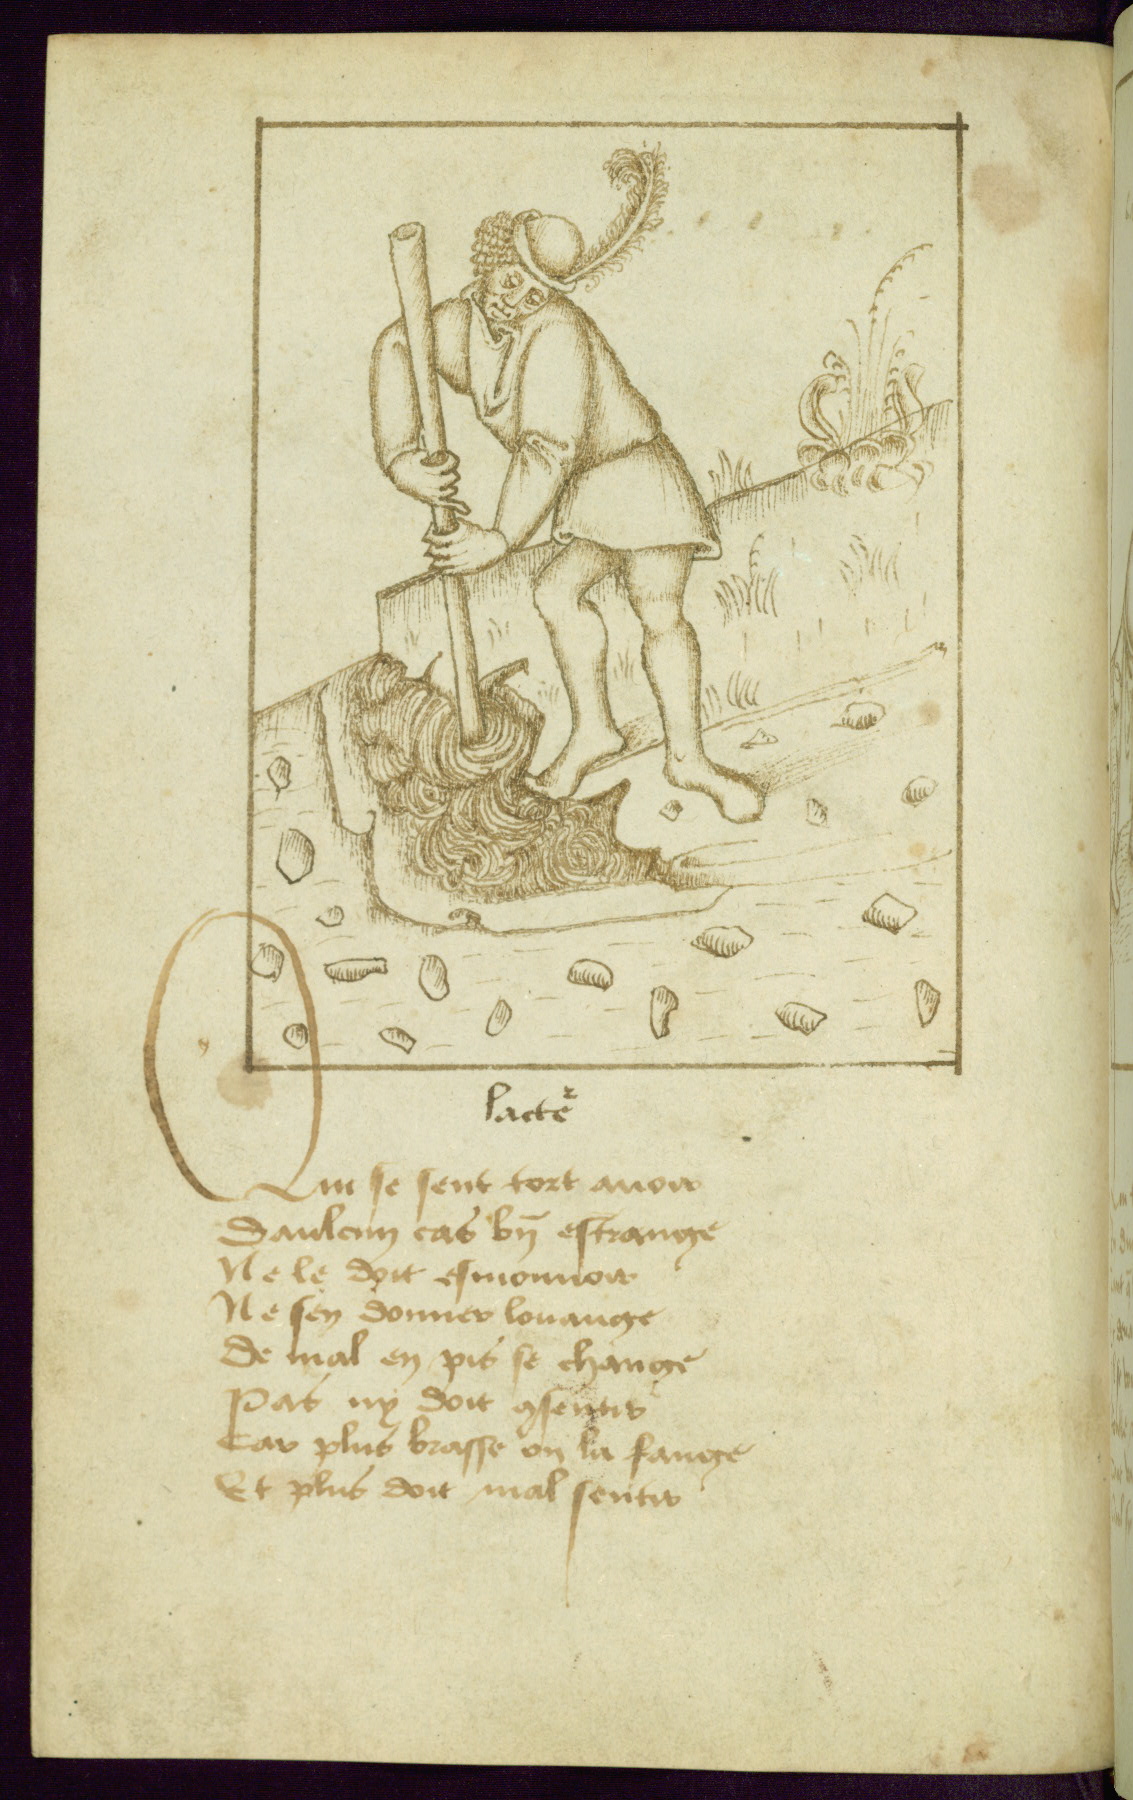 lacteʳ
Qui se sent tort auoir
Daulcun cas bn̄ estrange
Ne le doit esmouuoir
Ne sen donner louange
De mal en pis se change
Pas ny doit ꝯsentir
Car plus brasse on la fange
Et plus doit mal sentir